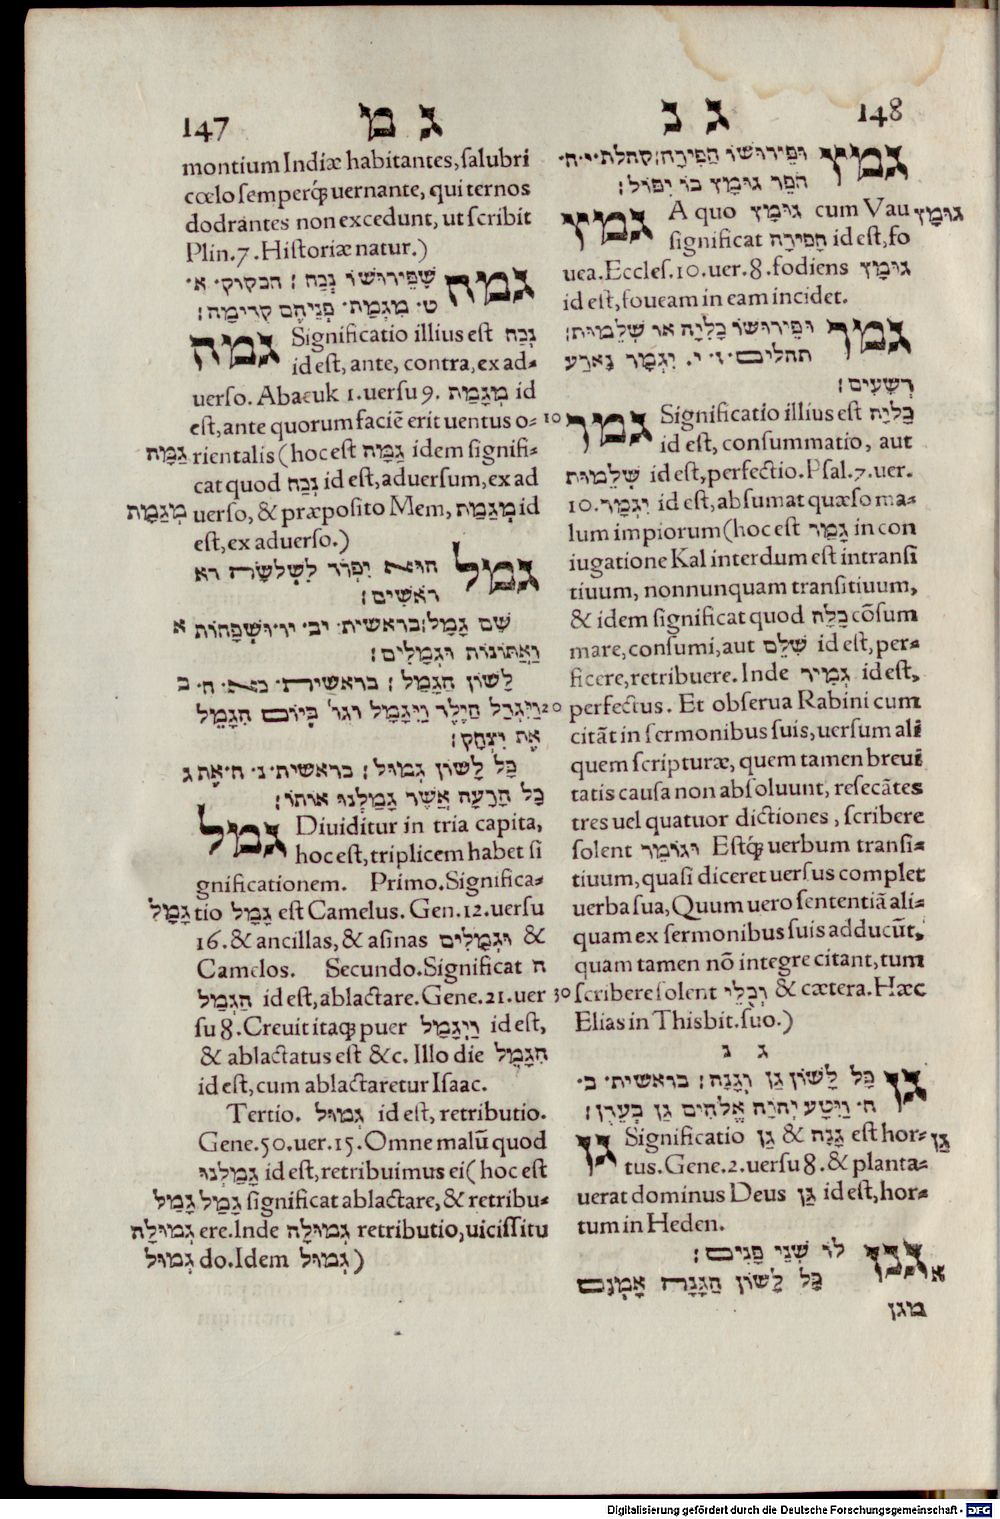 147 ג מ
montium Indiæ habitantes, salubri
cœlo semperq́ue uernante, qui ternos
dodrantes non excedunt, ut scribit
Plin. 7. Historiæ natur.)
גמה שֶׁפֵּירוּשׁוֹ נֶכַח׃ חבקוק· א·
ט· מְגַמַּת· פְּנֵיהֶם קָדִימָה׃
גמה Significatio illius est נֶכַח
id est, ante, contra, ex ad-
uerso. Abacuk 1. uersu 9. מְגַמַּת id
est, ante quorum faciē erit uentus o-
גַמָּה rientalis (hoc est גַמָּה idem signifi-
cat quod נֶכַח id est, aduersum, ex ad
מִגַמַּת uerso, & præposito Mem, מִגַמַּת id
est, ex aduerso.)
גמל הוא יפרד לשלשה רא
ראשים׃
שֵׁם גָּמָל׃ בראשית· יב· יו· וּשְׁפָחוֹת א
וַאֲתוֹנוֹת וּגְמַלִּים׃
לְשׁוֹן הִגָּמֵל׃ בראשית· כא· ח· ב
וַיִּגְדַּל הַיֶּלֶד וַיִּגָּמַל וגו' בְּיוֹם הִגָּמֵל
אֶת יִצְחָק׃
כָּל לְשׁוֹן גְּמוּל׃ בראשית· נ· ח· אֶת ג
כָּל הָרָעָה אֲשֶׁר גָּמַלְנוּ אוֹתוֹ׃
גמל Diuiditur in tria capita,
hoc est, triplicem habet si
gnificationem. Primo. Significa-
גָּמָל tio גָּמָל est Camelus. Gen. 12. uersu
16. & ancillas, & asinas וּגְמַלִּים &
Camelos. Secundo. Significat ה
הִגָּמֵל id est, ablactare. Gene. 21. uer
su 8. Creuit itaq́ue puer וַיִּגָּמַל id est,
& ablactatus est &c. Illo die הִגָּמֵל
id est, cum ablactaretur Isaac.
Tertio. גְּמוּל id est, retributio.
Gene. 50. uer. 15. Omne malū quod
גָּמַלְנוּ id est, retribuimus ei (hoc est
גָּמַל גָּמַל significat ablactare, & retribu-
גְּמוּלָה ere. Inde גְּמוּלָה retributio, uicissitu
גְּמוּל do. Idem גְּמוּל)
ג נ 148
גמץ וּפֵירוּשׁוֹ חֲפִירָה׃ קהלת· י· ח·
חֹפֵר גּוּמָּץ בּוֹ יִפּוֹל׃
גמץ A quo גּוּמָּץ cum Vau גּוּמָּץ
significat חֲפִירָה id est, fo
uea. Eccles. 10. uer. 8. fodiens גּוּמָּץ
id est, foueam in eam incidet.
גמר וּפֵירוּשׁוֹ כְּלָיָה או שְׁלֵמוּת׃
תהלים· ז· י· יִגְמָר נָא רַע
רְשָׁעִים׃
10 גמר Significatio illius est כְּלָיָה
id est, consummatio, aut
שְׁלֵמוּת id est, perfectio. Psal. 7. uer.
10. יִגְמָר id est, absumat quæso ma-
lum impiorum (hoc est גָּמַר in con
iugatione Kal interdum est intransi
tiuum, nonnunquam transitiuum,
& idem significat quod כָּלָה cōsum
mare, consumi, aut שָׁלֵם id est, per-
ficere, retribuere. Inde גְּמִיר id est,
20 perfectus. Et obserua Rabini cum
citāt in sermonibus suis, uersum ali
quem scripturæ, quem tamen breui
tatis causa non absoluunt, resecātes
tres uel quatuor dictiones, scribere
solent וְגוֹמֵר Estq́ue uerbum transi-
tiuum, quasi diceret uersus complet
uerba sua, Quum uero sententiā ali-
quam ex sermonibus suis adducūt,
quam tamen nō integre citant, tum
30 scribere solent וְכֻלֵּי & cætera. Hæc
Elias in Thisbit. suo.)
ג נ
גן כָּל לְשׁוֹן גַּן וְגַנָּה׃ בראשית· ב·
ח· וַיִּטַּע יְהֹוָה אֱלֹהִים גַּן בְּעֵדֶן׃
גן Significatio גַּן & גַּנָּה est hor- גַּן
tus. Gene. 2. uersu 8. & planta-
uerat dominus Deus גַּן id est, hor-
tum in Heden.
גנן לוֹ שְׁנֵי פָנִים׃
כָּל לְשׁוֹן הֲגָנָּה אָמְנָם א
מגן
Digitalisierung gefördert durch die Deutsche Forschungsgemeinschaft - DFG